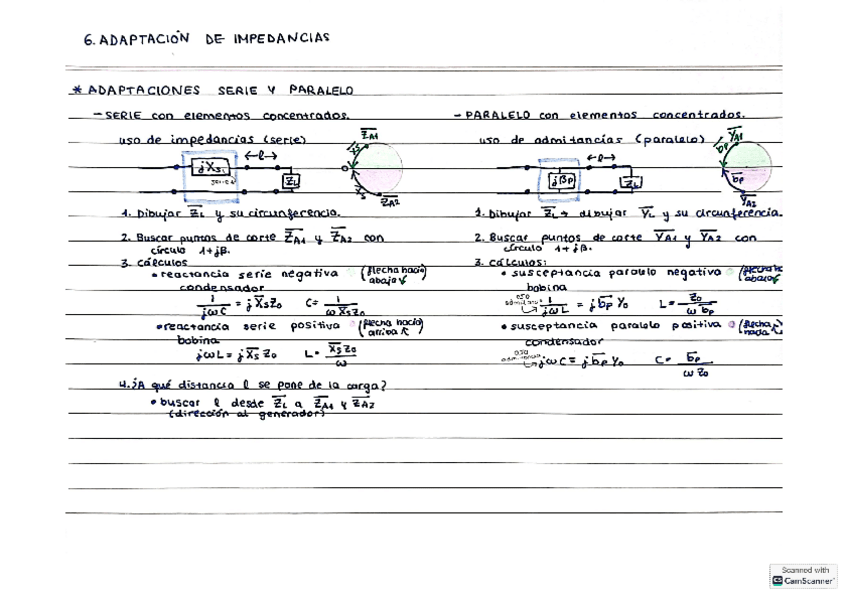 6. ADAPTACIÓN DE IMPEDANCIAS
* ADAPTACIONES SERIE Y PARALELO
- SERIE con elementos concentrados.
uso de impedancias (serie)
Z̅A1
jX̅s
←l→
Z̅L
0
X̅s
Z̅A2
1. Dibujar Z̅L y su circunferencia.
2. Buscar puntos de corte Z̅A1 y Z̅A2 con
círculo 1+jβ.
3. cálculos
• reactancia serie negativa (flecha hacia abajo↙)
condensador
1/jωC = jX̅sZ0 C = 1/ωX̅sZ0
• reactancia serie positiva (flecha hacia arriba ↖)
bobina
jωL = jX̅s Z0 L = X̅s Z0/ω
4. ¿A qué distancia l se pone de la carga?
• buscar l desde Z̅L a Z̅A1 y Z̅A2
(dirección al generador)
- PARALELO con elementos concentrados.
uso de admitancias (paralelo)
Y̅A1
b̅p
←l→
jβp
Z̅L
b̅p
Y̅A2
1. Dibujar Z̅L → dibujar Y̅L y su circunferencia.
2. Buscar puntos de corte Y̅A1 y Y̅A2 con
círculo 1+jβ.
3. cálculos:
• susceptancia paralelo negativa (flecha abajo↙)
bobina
1/jωL = jb̅p Y0 L = Z0/ωb̅p
• susceptancia paralelo positiva (flecha
condensador
jωC = jb̅p Y0 C = b̅p/ωZ0
Scanned with
CS CamScanner